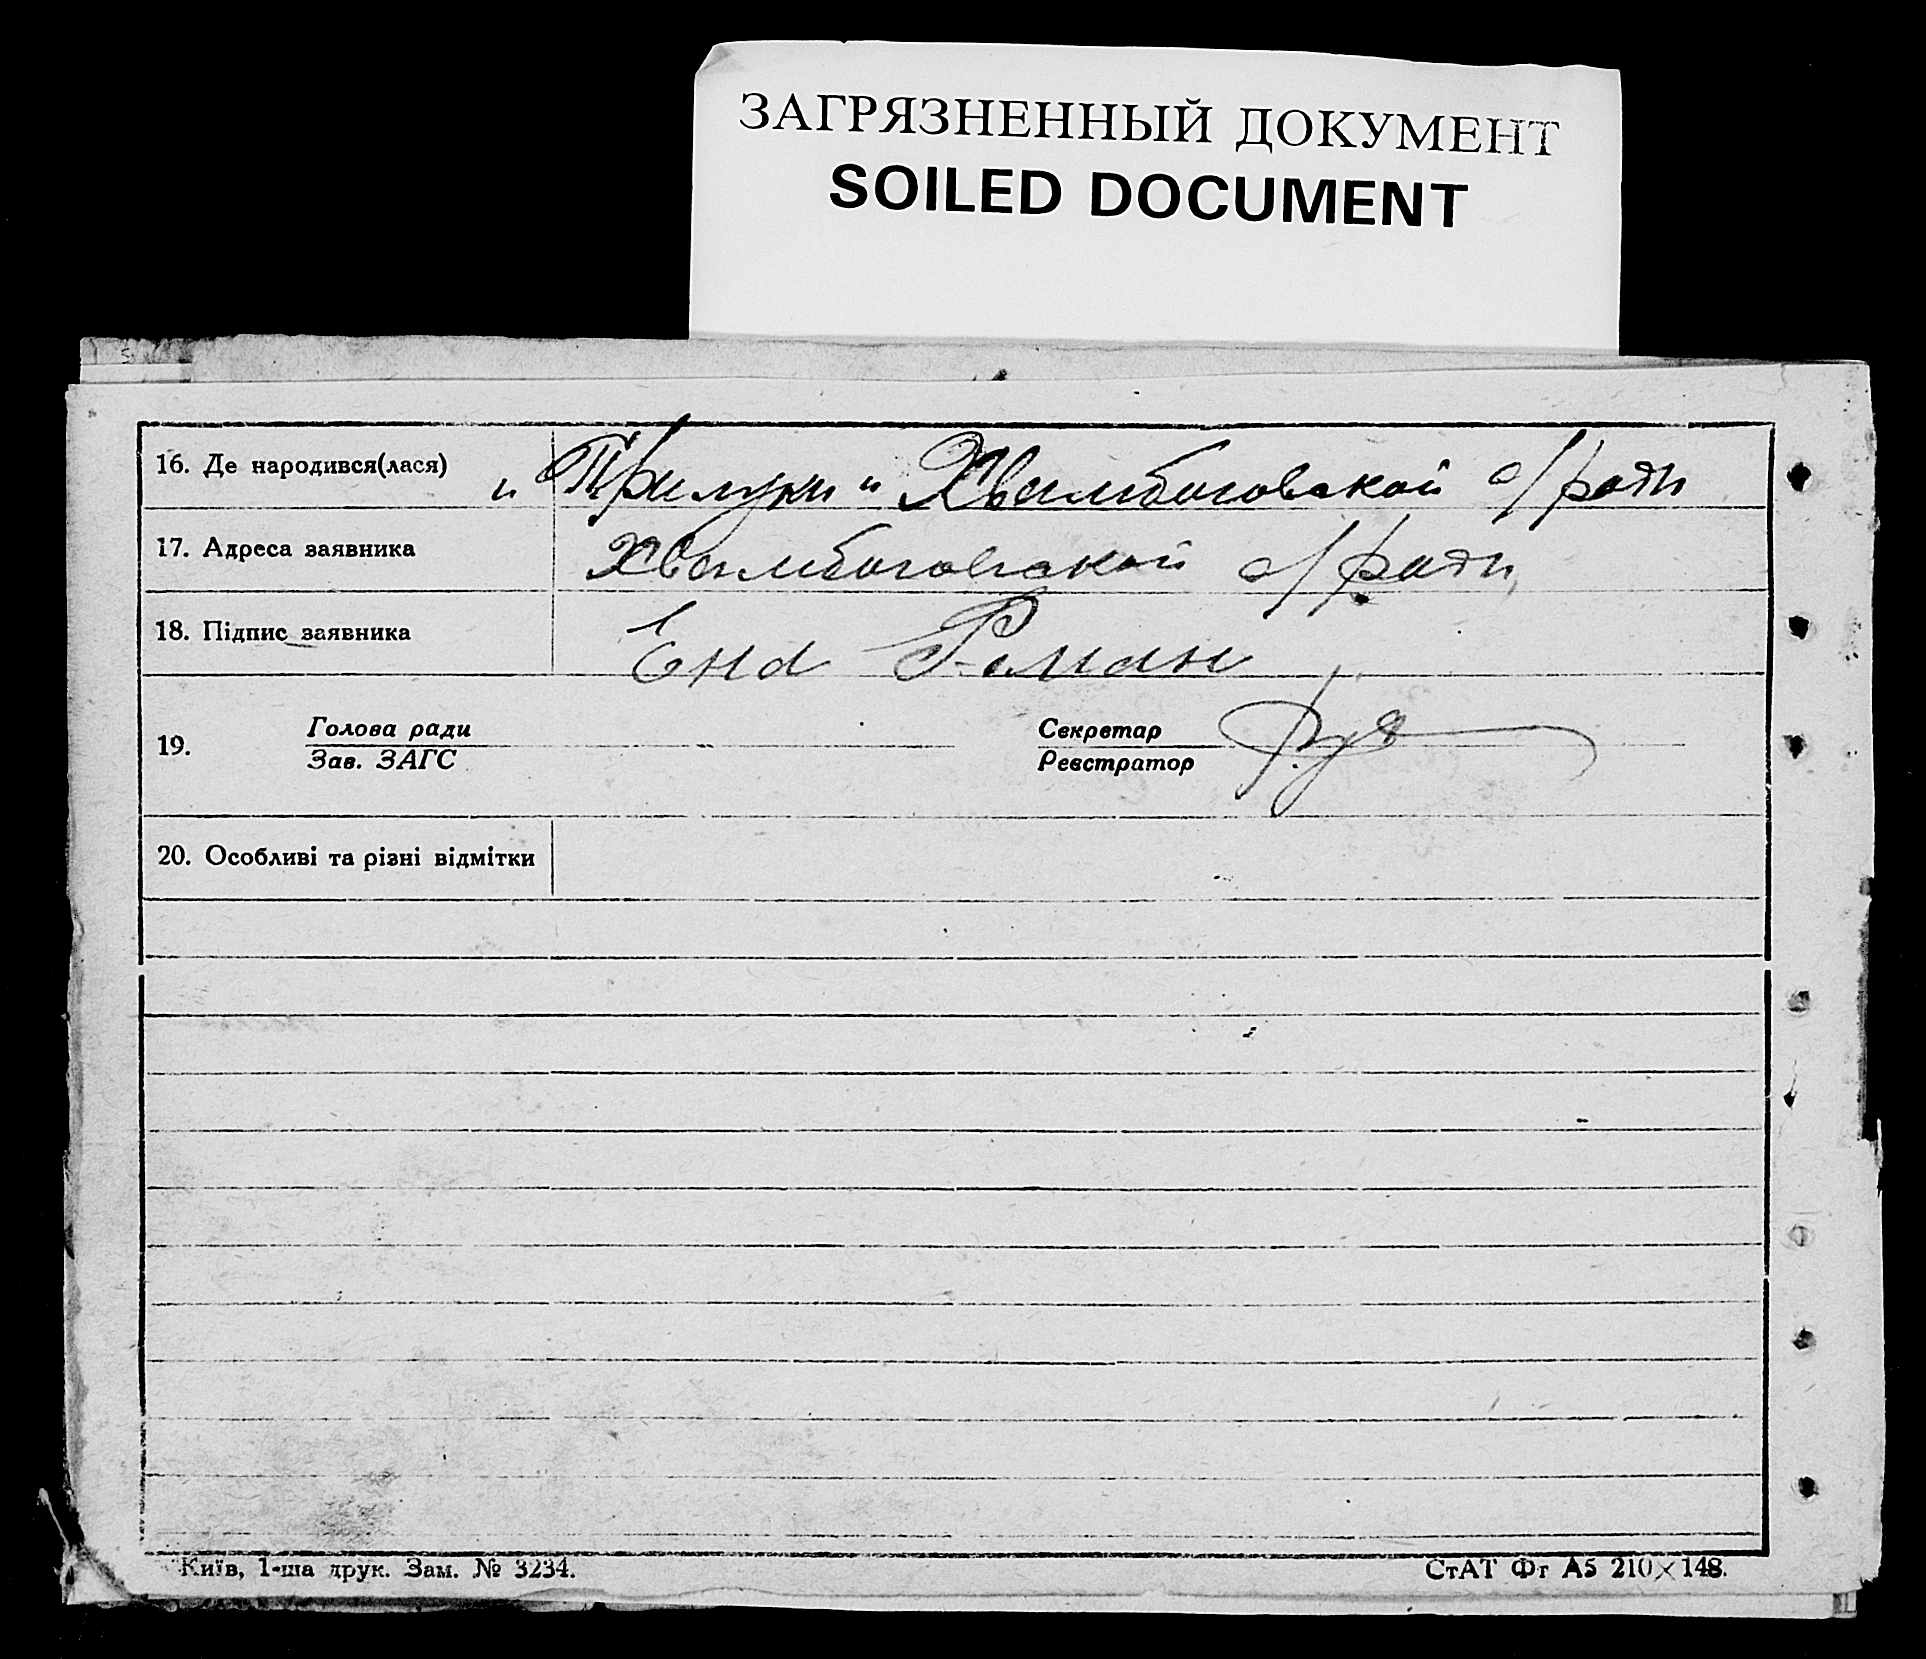 ЗАГРЯЗНЕННЫЙ ДОКУМЕНТ
SOILED DOCUMENT
16. Де народився(лася) „Прилуки“ Хвильбоговской с/ради
17. Адреса заявника Хвильбоговской с/ради
18. Підпис заявника Ена Роман
19. Голова ради Секретар
Зав. ЗАГС Реєстратор
20. Особливі та різні відмітки
Київ, 1-ша друк. Зам. № 3234. СтАТ Фг А5 210×148.